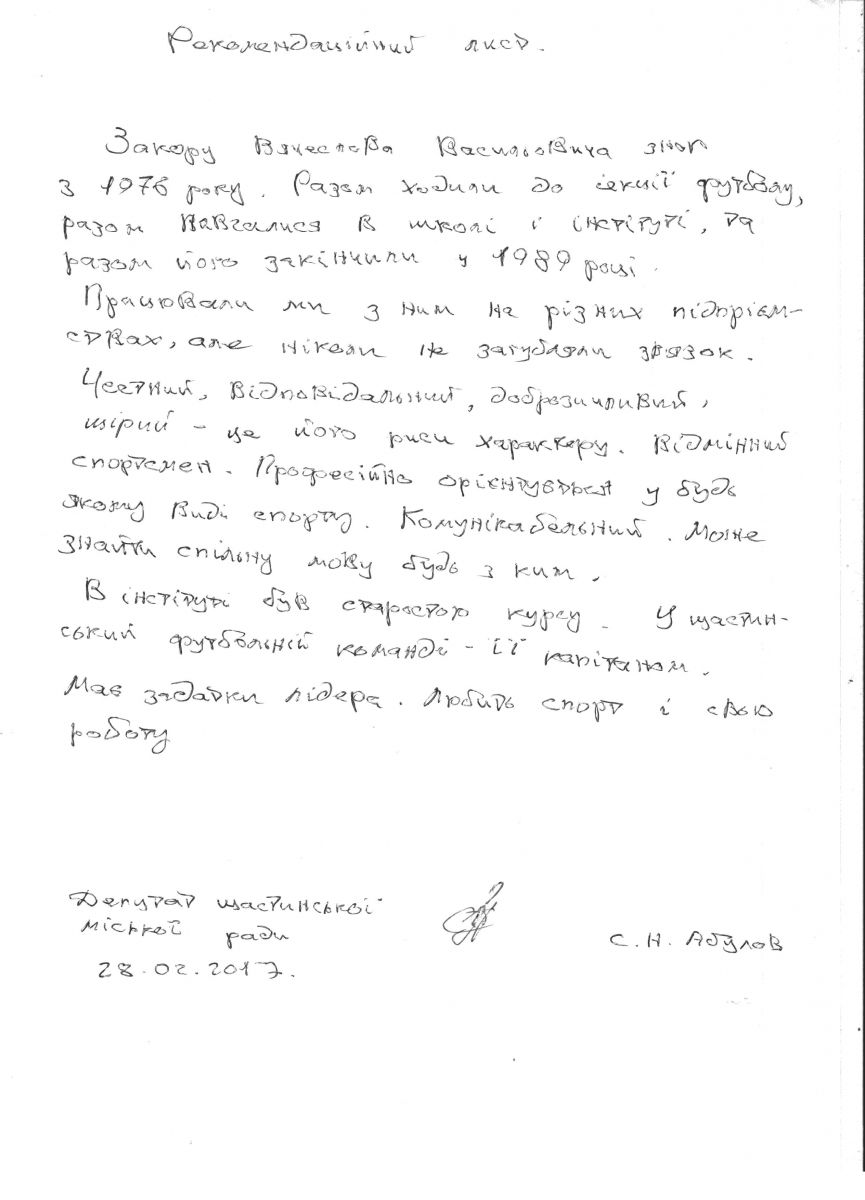 Рекомендаційний лист.
Закору Вячеслава Васильовича знаю
з 1976 року. Разом ходили до секції футболу,
разом навчалися в школі і інстітуті, та
разом його закінчили у 1989 році.
Працювали ми з ним на різних підпрієм-
ствах, але ніколи не загубляли звязок.
Честний, відповідальний, доброзичливий,
щірий - це його риси характеру. Відмінний
спортсмен. Професійно орієнтується у будь
якому виді спорту. Комунікабельний. Може
знайти спільну мову будь з ким.
В інстітуті був старостою курсу. У щастин-
ський футбольній команді - її капітаном.
Має задатки лідера. Любить спорт і свою
роботу
Депутат щастинської
міської ради
28.02.2017.
С.Н. Абулов